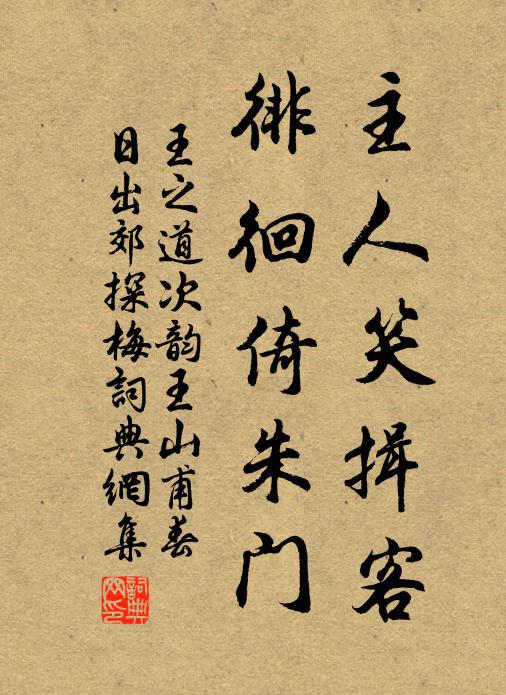 主人笑揖客
徘徊倚朱門
王之道次韵王山甫春
日出郊探梅詞典網集
詞典网印